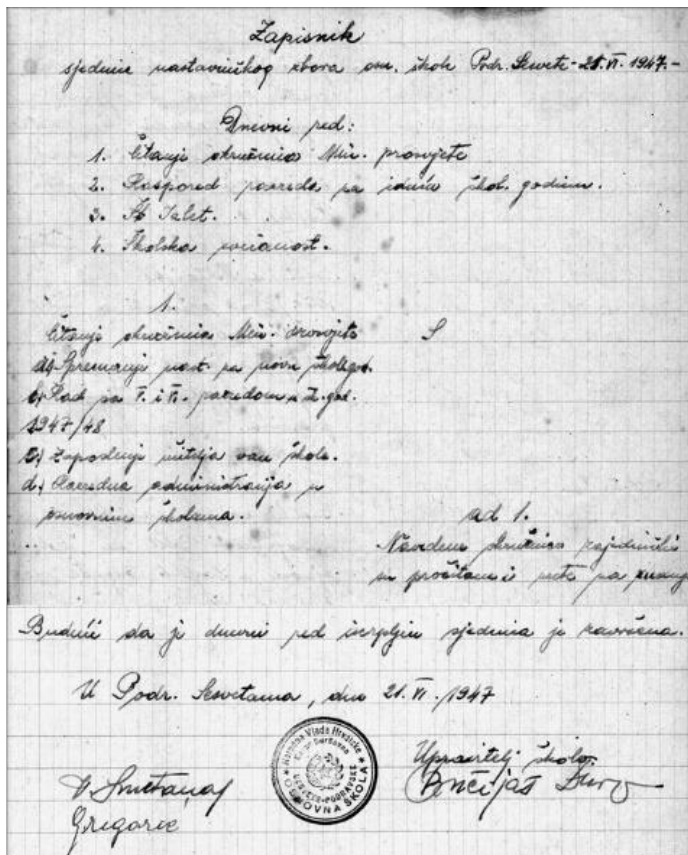 Zapisnik
sjednice nastavničkog zbora osn. škole Podr. Sesvete - 21. VI. 1947. -
Dnevni red:
1. Čitanje okružnica Min. prosvjete
2. Raspored razreda za iduću škol. godinu.
3. Izlet.
4. Školska svečanost.
1.
Čitanje okružnica Min. prosvjete
a) Spremanje nast. za novu škol. god.
b) Rad sa V. i VI. razredom u šk. god.
1947/48
c) Zaposlenje učitelja van škole.
d) Razredna administracija u
osnovnim školama.
ad 1.
Navedene okružnice zajednički
su pročitane i uzete na znanje
Budući da je dnevni red iscrpljen sjednica je završena.
U Podr. Sesvetama, dne 21. VI. 1947
Narodna Vlada Hrvatske
SESVETE-PODRAVSKE
OSNOVNA ŠKOLA
Upravitelj škole:
V. Smetanaj
Grigorec